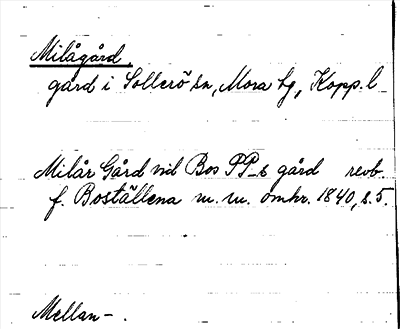 Milågård.
gård i Sollerö sn, Mora tg, Kopp. l
Milår Gård vid Bos PP_s gård revb.
f. Boställena m. m. omkr. 1840, s. 5.
Mellan- .